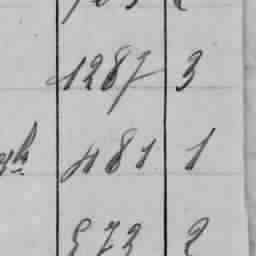 1287 3
481 1
573 2